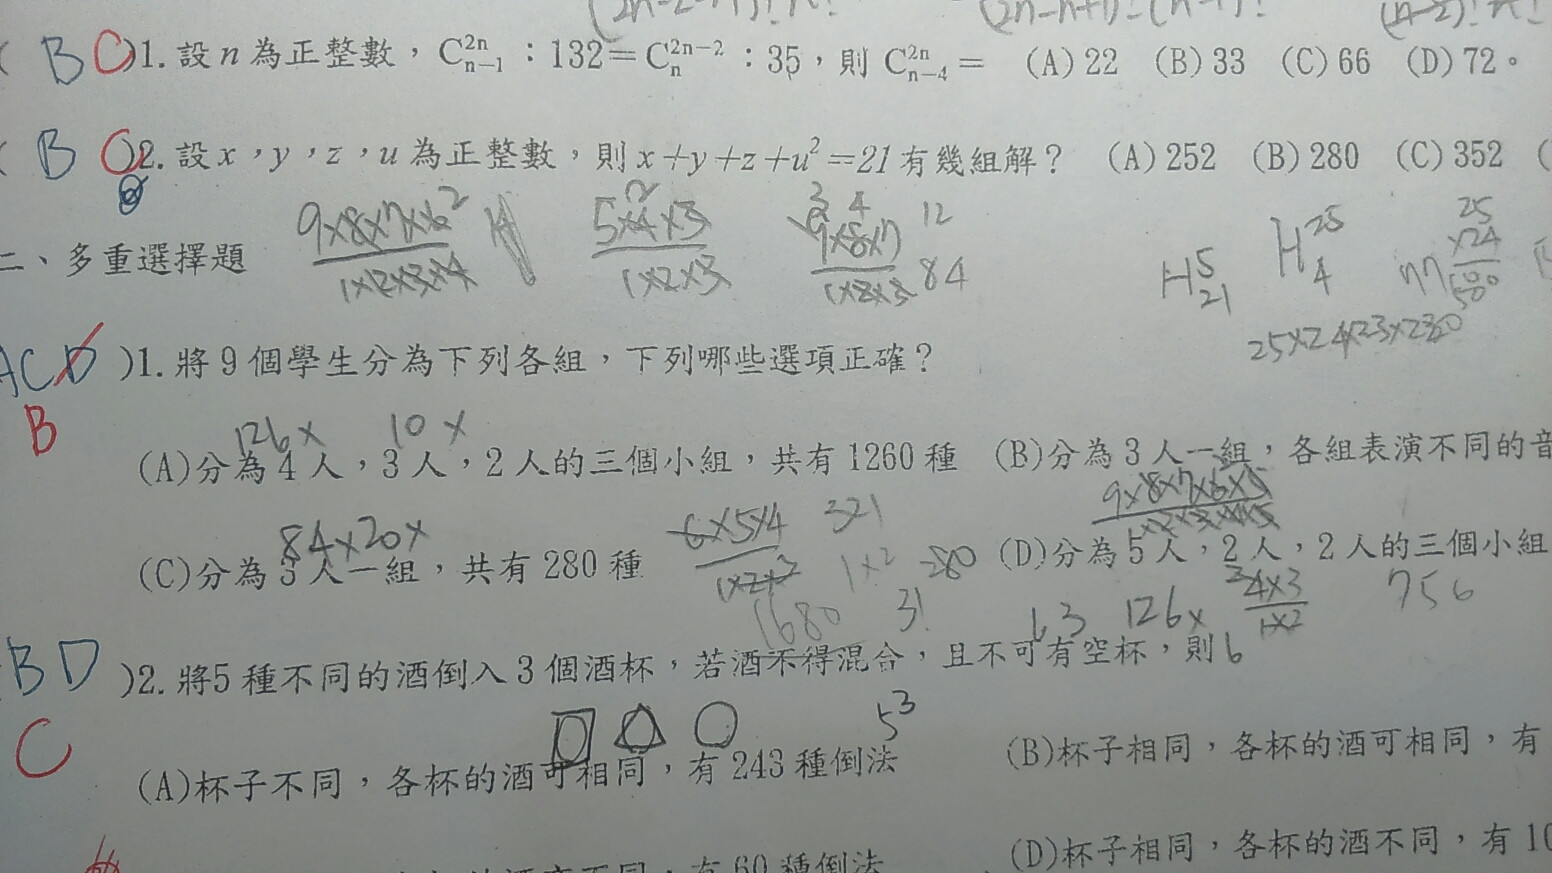 BC)1. 設 n 為正整數，C^{2n}_{n-1}：132＝C^{2n-2}_{n}：35，則 C^{2n}_{n-4}＝ (A) 22 (B) 33 (C) 66 (D) 72。
B C)2. 設 x，y，z，u 為正整數，則 x+y+z+u²=21 有幾組解？ (A) 252 (B) 280 (C) 352 (
9×8×7×6 2 5×4×3 2 3 4 9×8×7 12 H^5_21 H^25_4 25
1×2×3×4 1×2×3 1×2×3 84 ×24
二、多重選擇題
25×24×23×22
ACD )1. 將 9 個學生分為下列各組，下列哪些選項正確？
B
126× 10×
(A)分為 4 人，3 人，2 人的三個小組，共有 1260 種 (B)分為 3 人一組，各組表演不同的音
84×20× 6×5×4 321 9×8×7×6×5
1×2×3 1×2 280 1×2×3×4×5
(C)分為 3 人一組，共有 280 種 (D)分為 5 人，2 人，2 人的三個小組
1680 3! 63 126× 4×3 756
1×2
BD )2. 將5 種不同的酒倒入 3 個酒杯，若酒不得混合，且不可有空杯，則 6
C
5³
(A)杯子不同，各杯的酒可相同，有 243 種倒法 (B)杯子相同，各杯的酒可相同，有
不同，有 60 種倒法 (D)杯子相同，各杯的酒不同，有 10